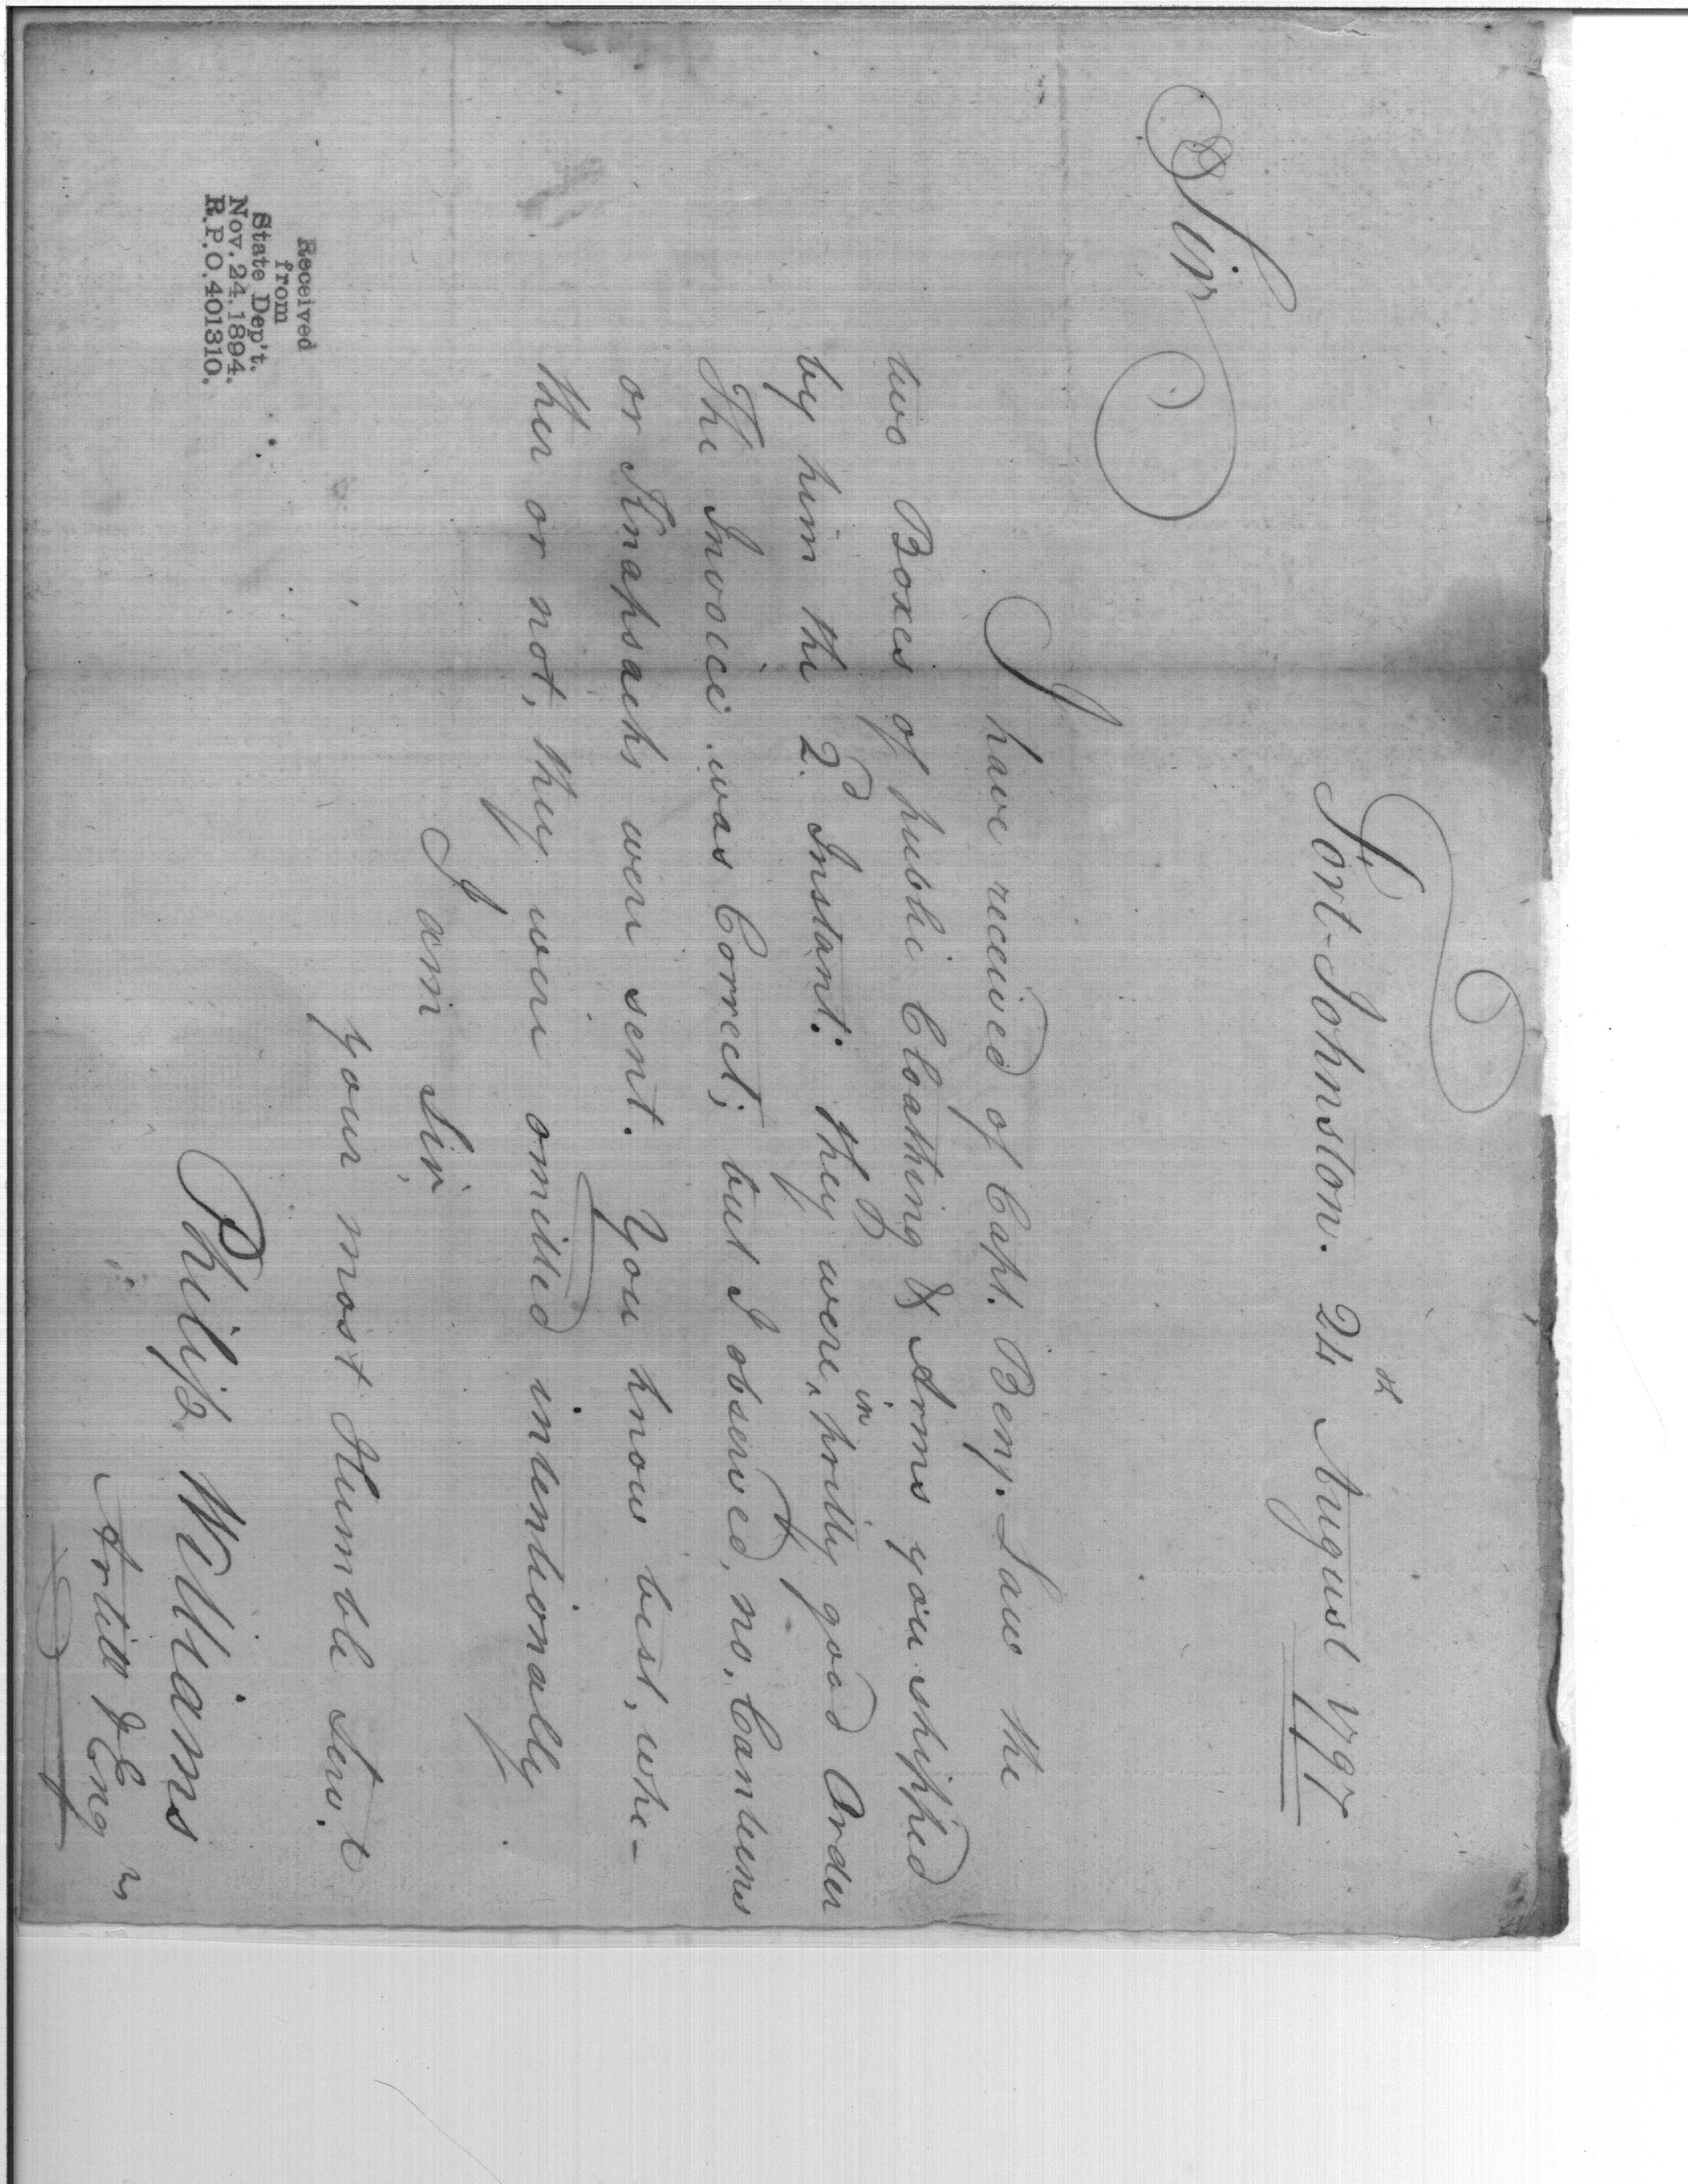 Fort-Johnston. 24th August 1797
Sir
I have received of Capt. Benj. Law the
two Boxes of public Cloathing & Arms you shipped
by him the 2d. Instant: they were in pritty good Order
The Invoice was Correct; but I observed, no, Canteens
or Knapsacks were sent. You know best, whe-
ther or not, they were omitted intentionally
I am Sir,
your most Humble Serv.t
Philip Williams
Artill & Eng rs
Received
from
State Dep't.
Nov. 24. 1894.
R.P.O. 401310.